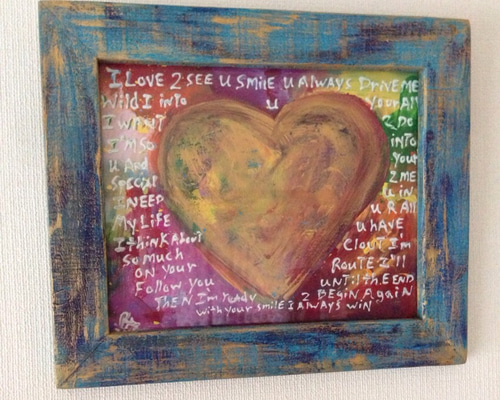 I LOVE 2 SEE U SMILE U ALWAYS DRIVE ME
WILD I INTO U YOUR ALL
I WANT 2 DO
I'M SO INTO
U ARE YOUR
SPECIAL 2 ME
I NEED U IN
MY LIFE U R ALL
I THINK ABOUT U HAVE
SO MUCH CLOUT I'm
ON YOUR ROUTE I'll
FOLLOW YOU UNTIL the END
THEN I'm ready 2 BEGIN AGAIN
with your smile I ALWAYS WIN